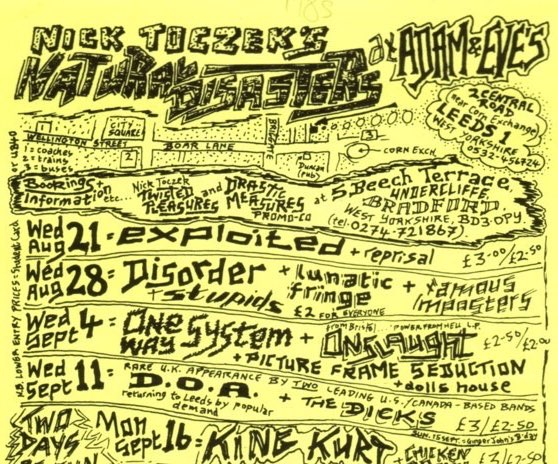 1985
NICK TOCZEK'S
NATURAL DISASTERS
at ADAM & EVE'S
2 CENTRAL
ROAD
(Near Corn Exchange)
LEEDS 1
WEST YORKSHIRE
0532-456724
CITY
SQUARE
WELLINGTON STREET
BOAR LANE
BRIGGATE
1 = coaches
2 = trains
3 = buses
1
2
3
Duncan
(pub)
CORN EXCH.
Bookings
Information
etc...
Nick Toczek
TWISTED
PLEASURES
and
DRASTIC
MEASURES
PROMO-CO
at 5, Beech Terrace,
UNDERCLIFFE,
BRADFORD,
WEST YORKSHIRE, BD3 0PY.
(tel: 0274-721867)
N.B. LOWER ENTRY PRICES =
Wed
Aug 21 = exploited + reprisal £3.00/£2.50
Wed
Aug 28 = Disorder + lunatic fringe + famous imposters
+ stupids
£2 FOR EVERYONE
Wed
Sept 4 = ONE WAY SYSTEM + ONSLAUGHT £2-50/£2.00
from Bristol ... POWER FROM HELL L.P.
+ PICTURE FRAME SEDUCTION
+ dolls house
Wed
Sept 11 = RARE U.K. APPEARANCE BY TWO LEADING U.S./CANADA-BASED BANDS
D.O.A. + THE DICKS
returning to Leeds by popular
demand
£3/£2-50
SUN. 15 SEPT. = Ginger John's B'day
TWO
DAYS
Mon
Sept 16 = KING KURT + CHICKEN £3/£2-50